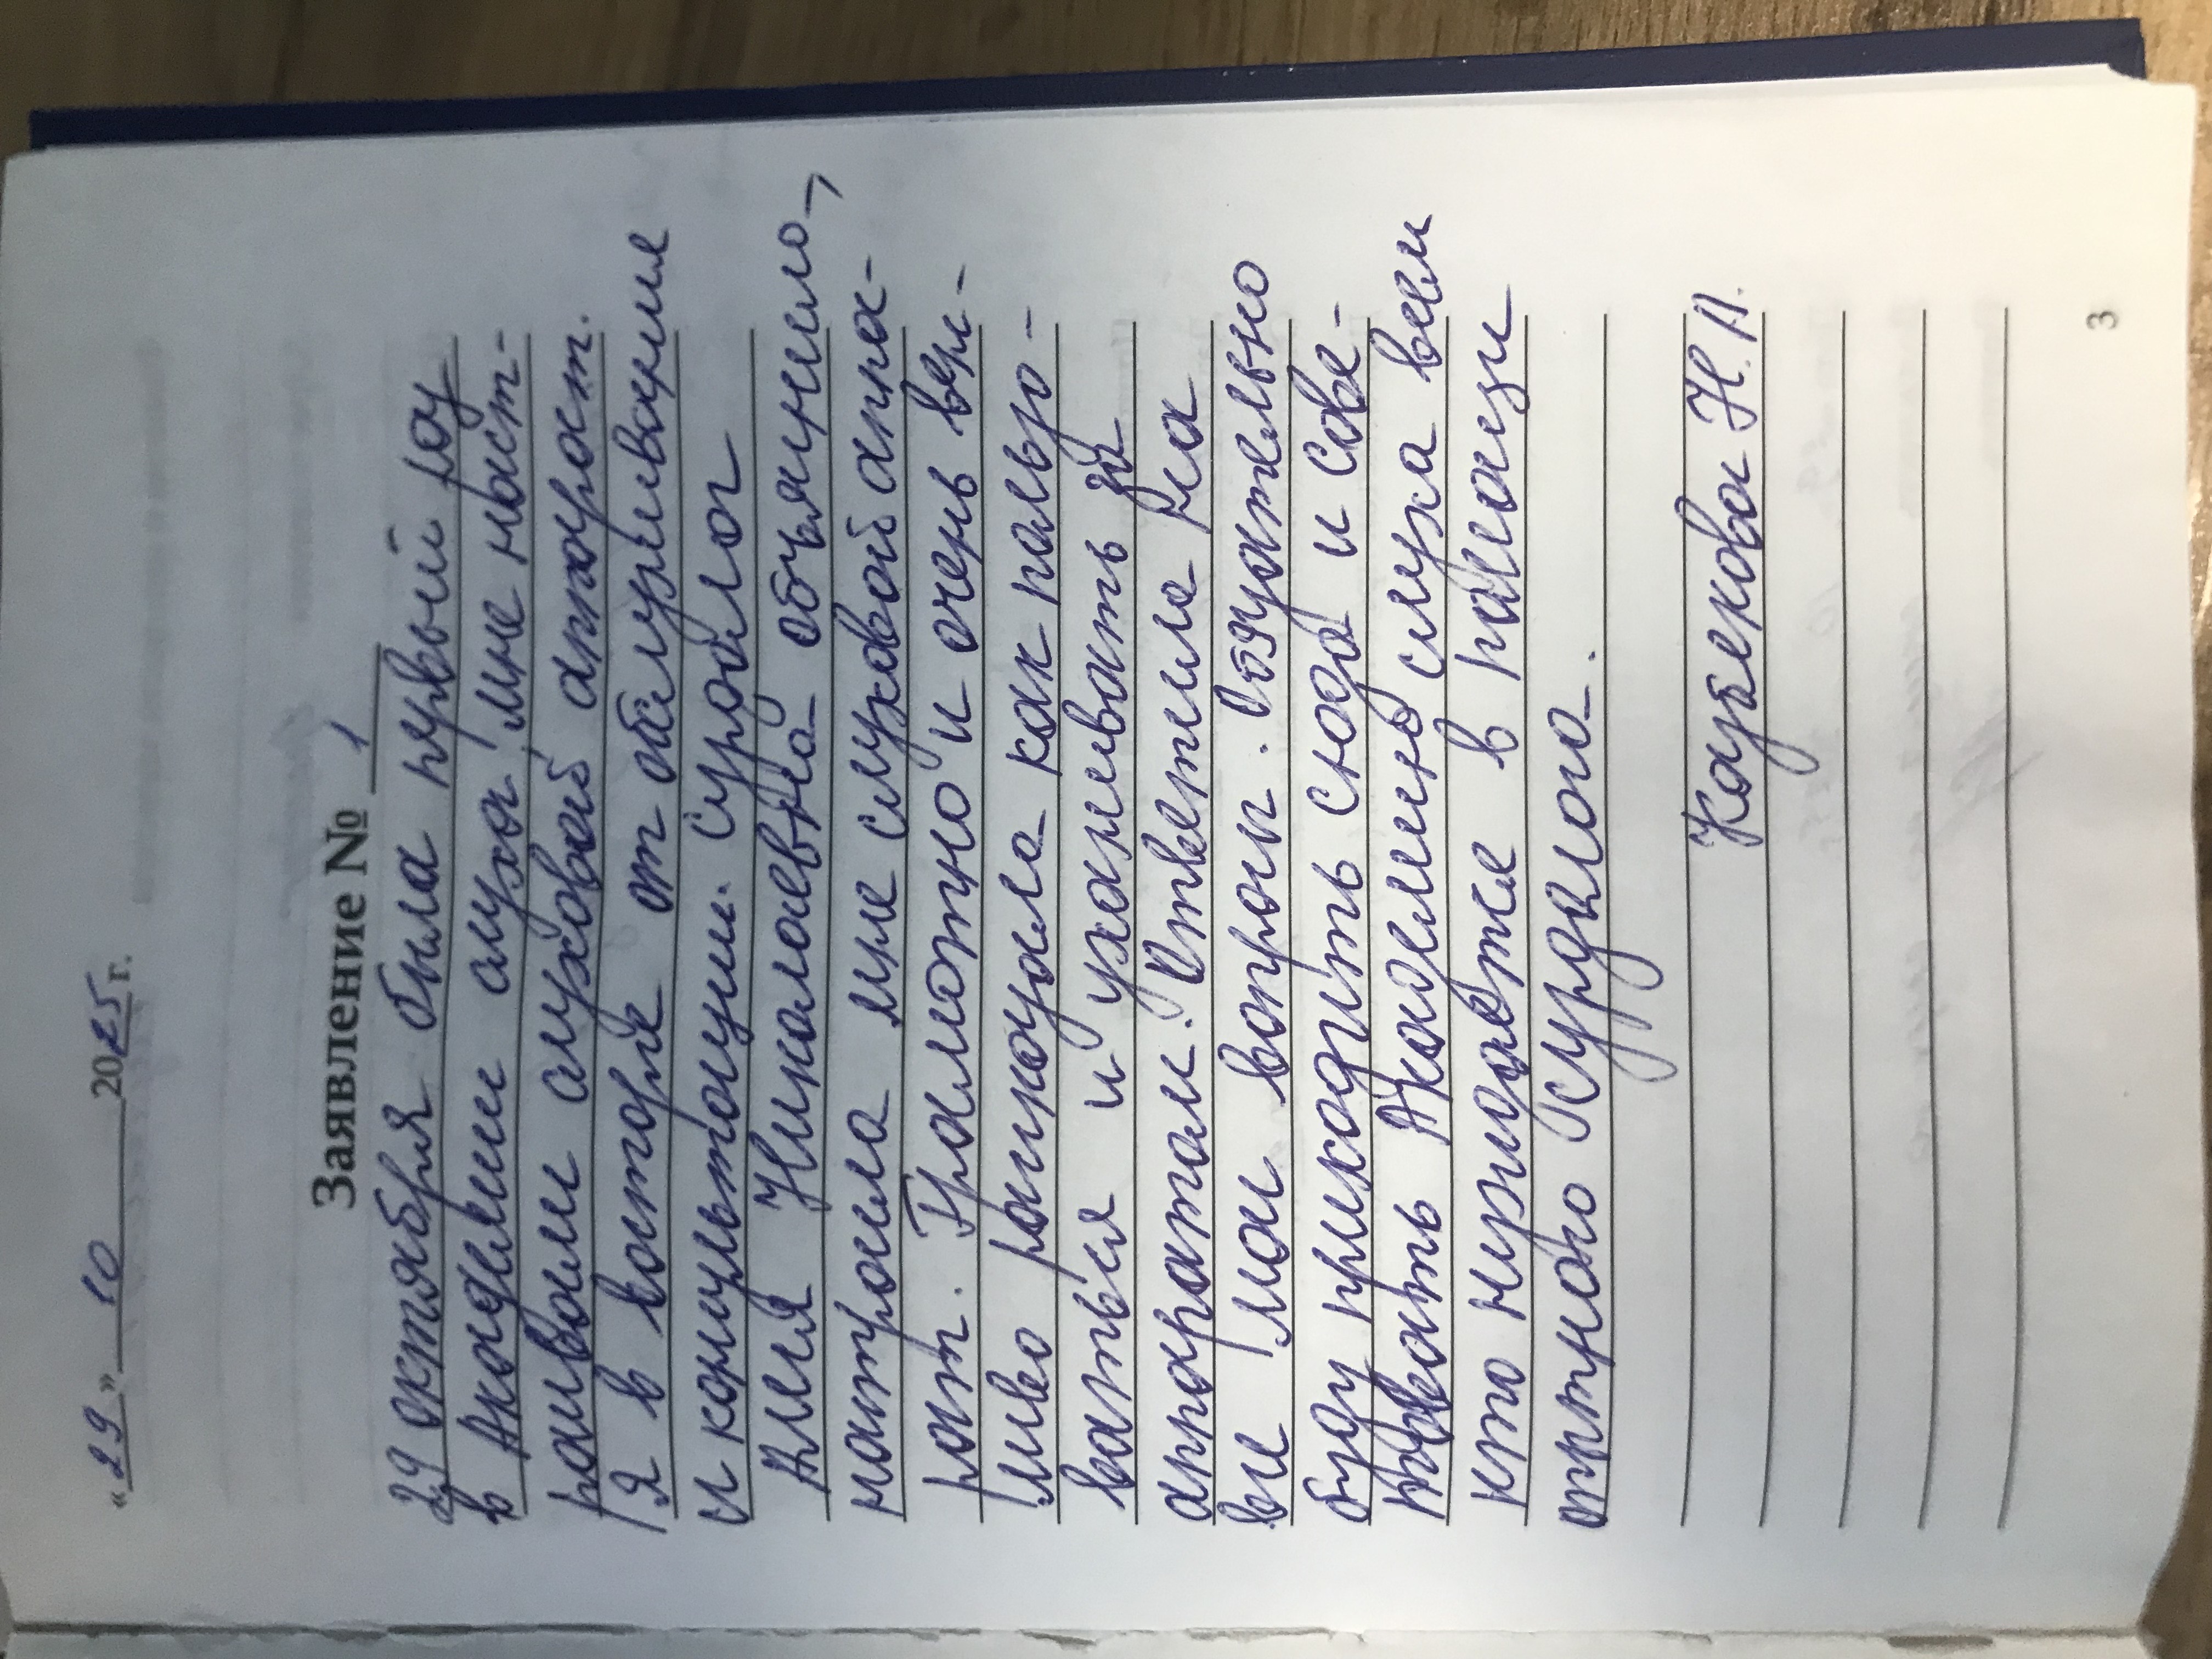 «29» 10 2025 г.
Заявление № 1
29 октября была первый раз
в Академии слуха, мне наст-
раивали слуховой аппарат.
Я в восторге от обслуживания
и консультации. Сурдолог
Алия Николаевна объяснила,
настроила мне слуховой аппа-
рат. Грамотно и очень веж-
ливо рассказала как пользо-
ваться и ухаживать за
аппаратом. Ответила на
все мои вопросы. Обязательно
буду приходить сюда и сове-
товать Академию слуха всем
кто нуждается в помощи
опытного сурдолога.
Казбекова Н.А.
3